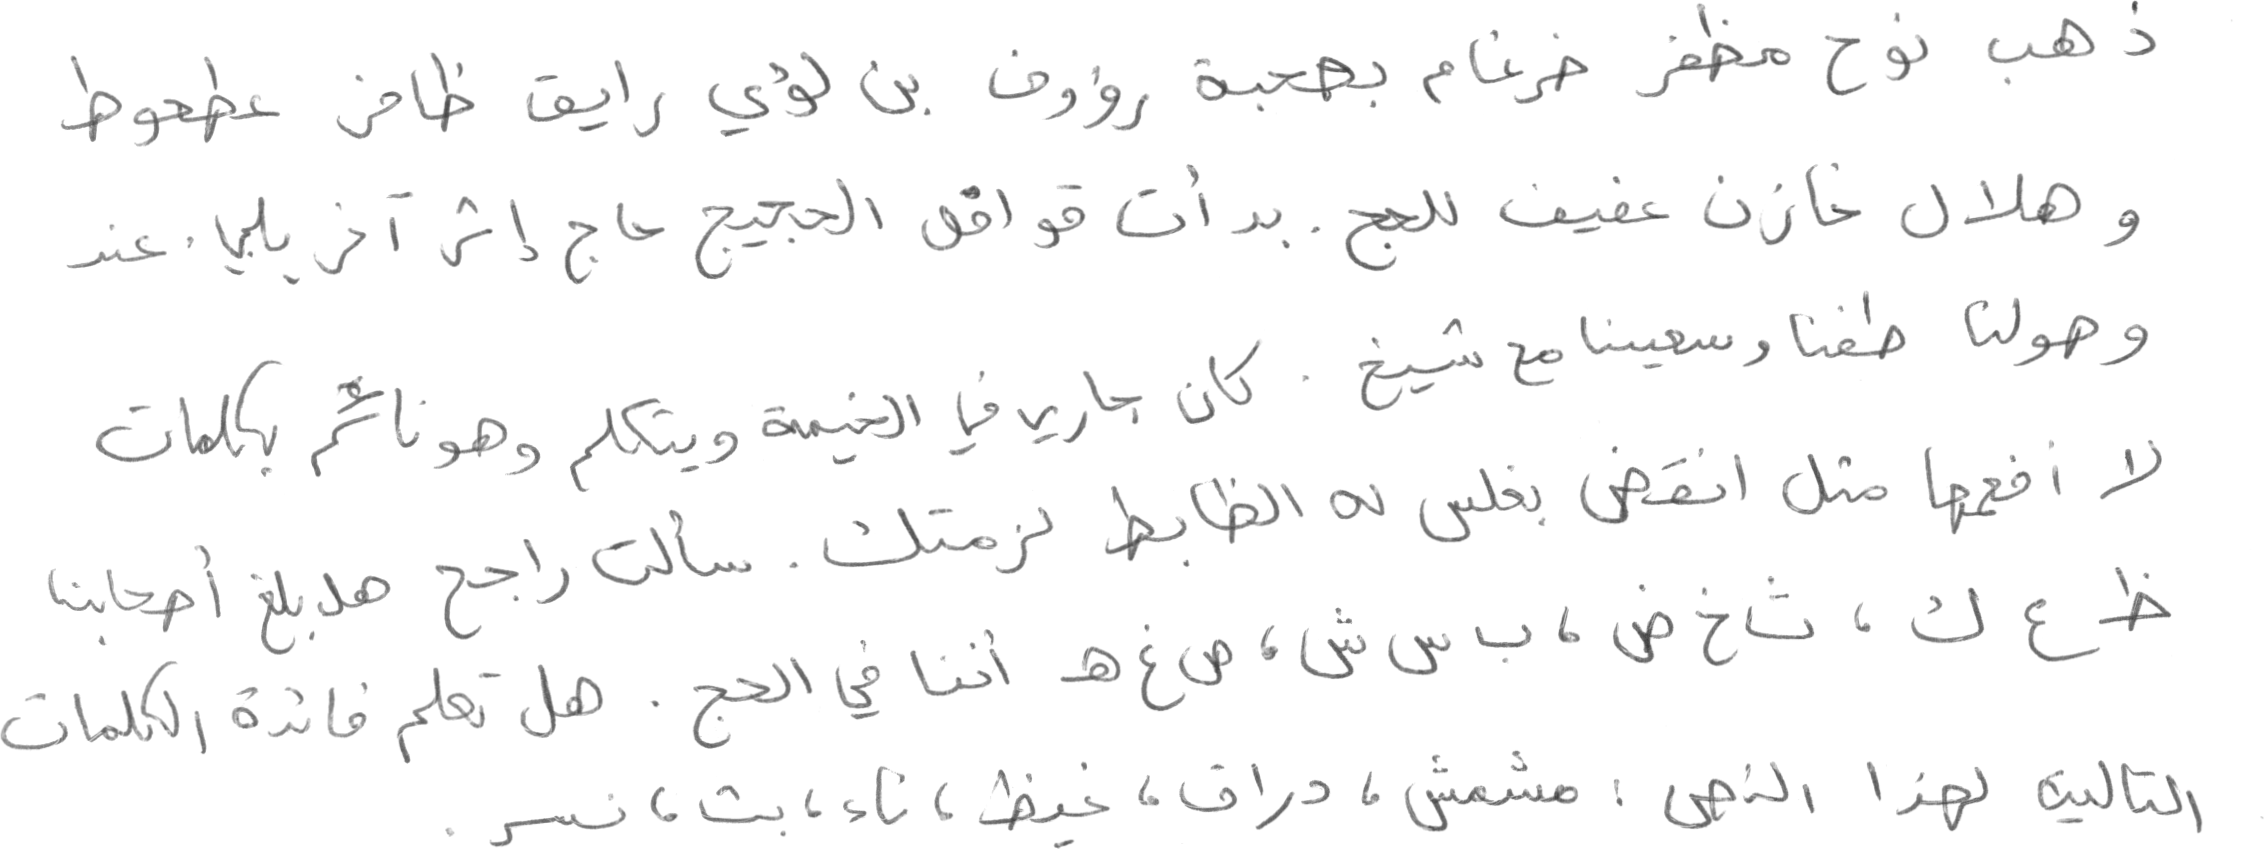 ذهب نوح مظفر ضرغام بصحبة رؤوف بن لؤي رايق ظافر عطعوط
و هلال خازن عفيف للحج. بدأت قوافل الحجيج حاج إثر آخر يلبي. عند
وصولنا طفنا وسعينا مع شيخ. كان جاري في الخيمة ويتكلم وهو نائم بكلمات
لا أفهمها مثل انقض بغلس له الظابط لزمتك. سألت راجح هل بلغ أصحابنا
ظ ع ك، ث خ ض، ب س ش، ص غ هـ أننا في الحج. هل تعلم فائدة الكلمات
التالية لهذا النص: مشمش، دراق، غيظ، ناء، بث، نسر.